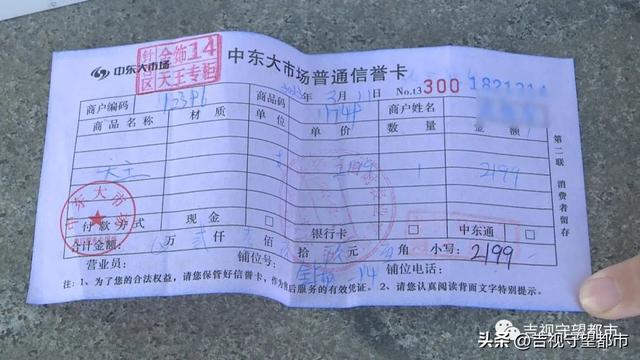 中东大市场
针 金饰14
区 天王专柜
中东大市场普通信誉卡
年3月11日 No.13300 1821214
商户编码 商品码 商户姓名
商品名称 材质 单位 单价 数量 金额
天王 1 2199
中东大市场
付款方式 现金 □ 银行卡 □ 中东通 □
合计金额: 万 贰仟 壹佰 拾 玖元 角 小写: 2199
营业员: 铺位号: 金饰 14 铺位电话:
注: 1、为了您的合法权益, 请您保管好信誉卡, 作为售后服务的有效凭证。 2、请您认真阅读背面文字特别提示。
第二联 消费者留存
吉视守望都市
头条 @吉视守望都市